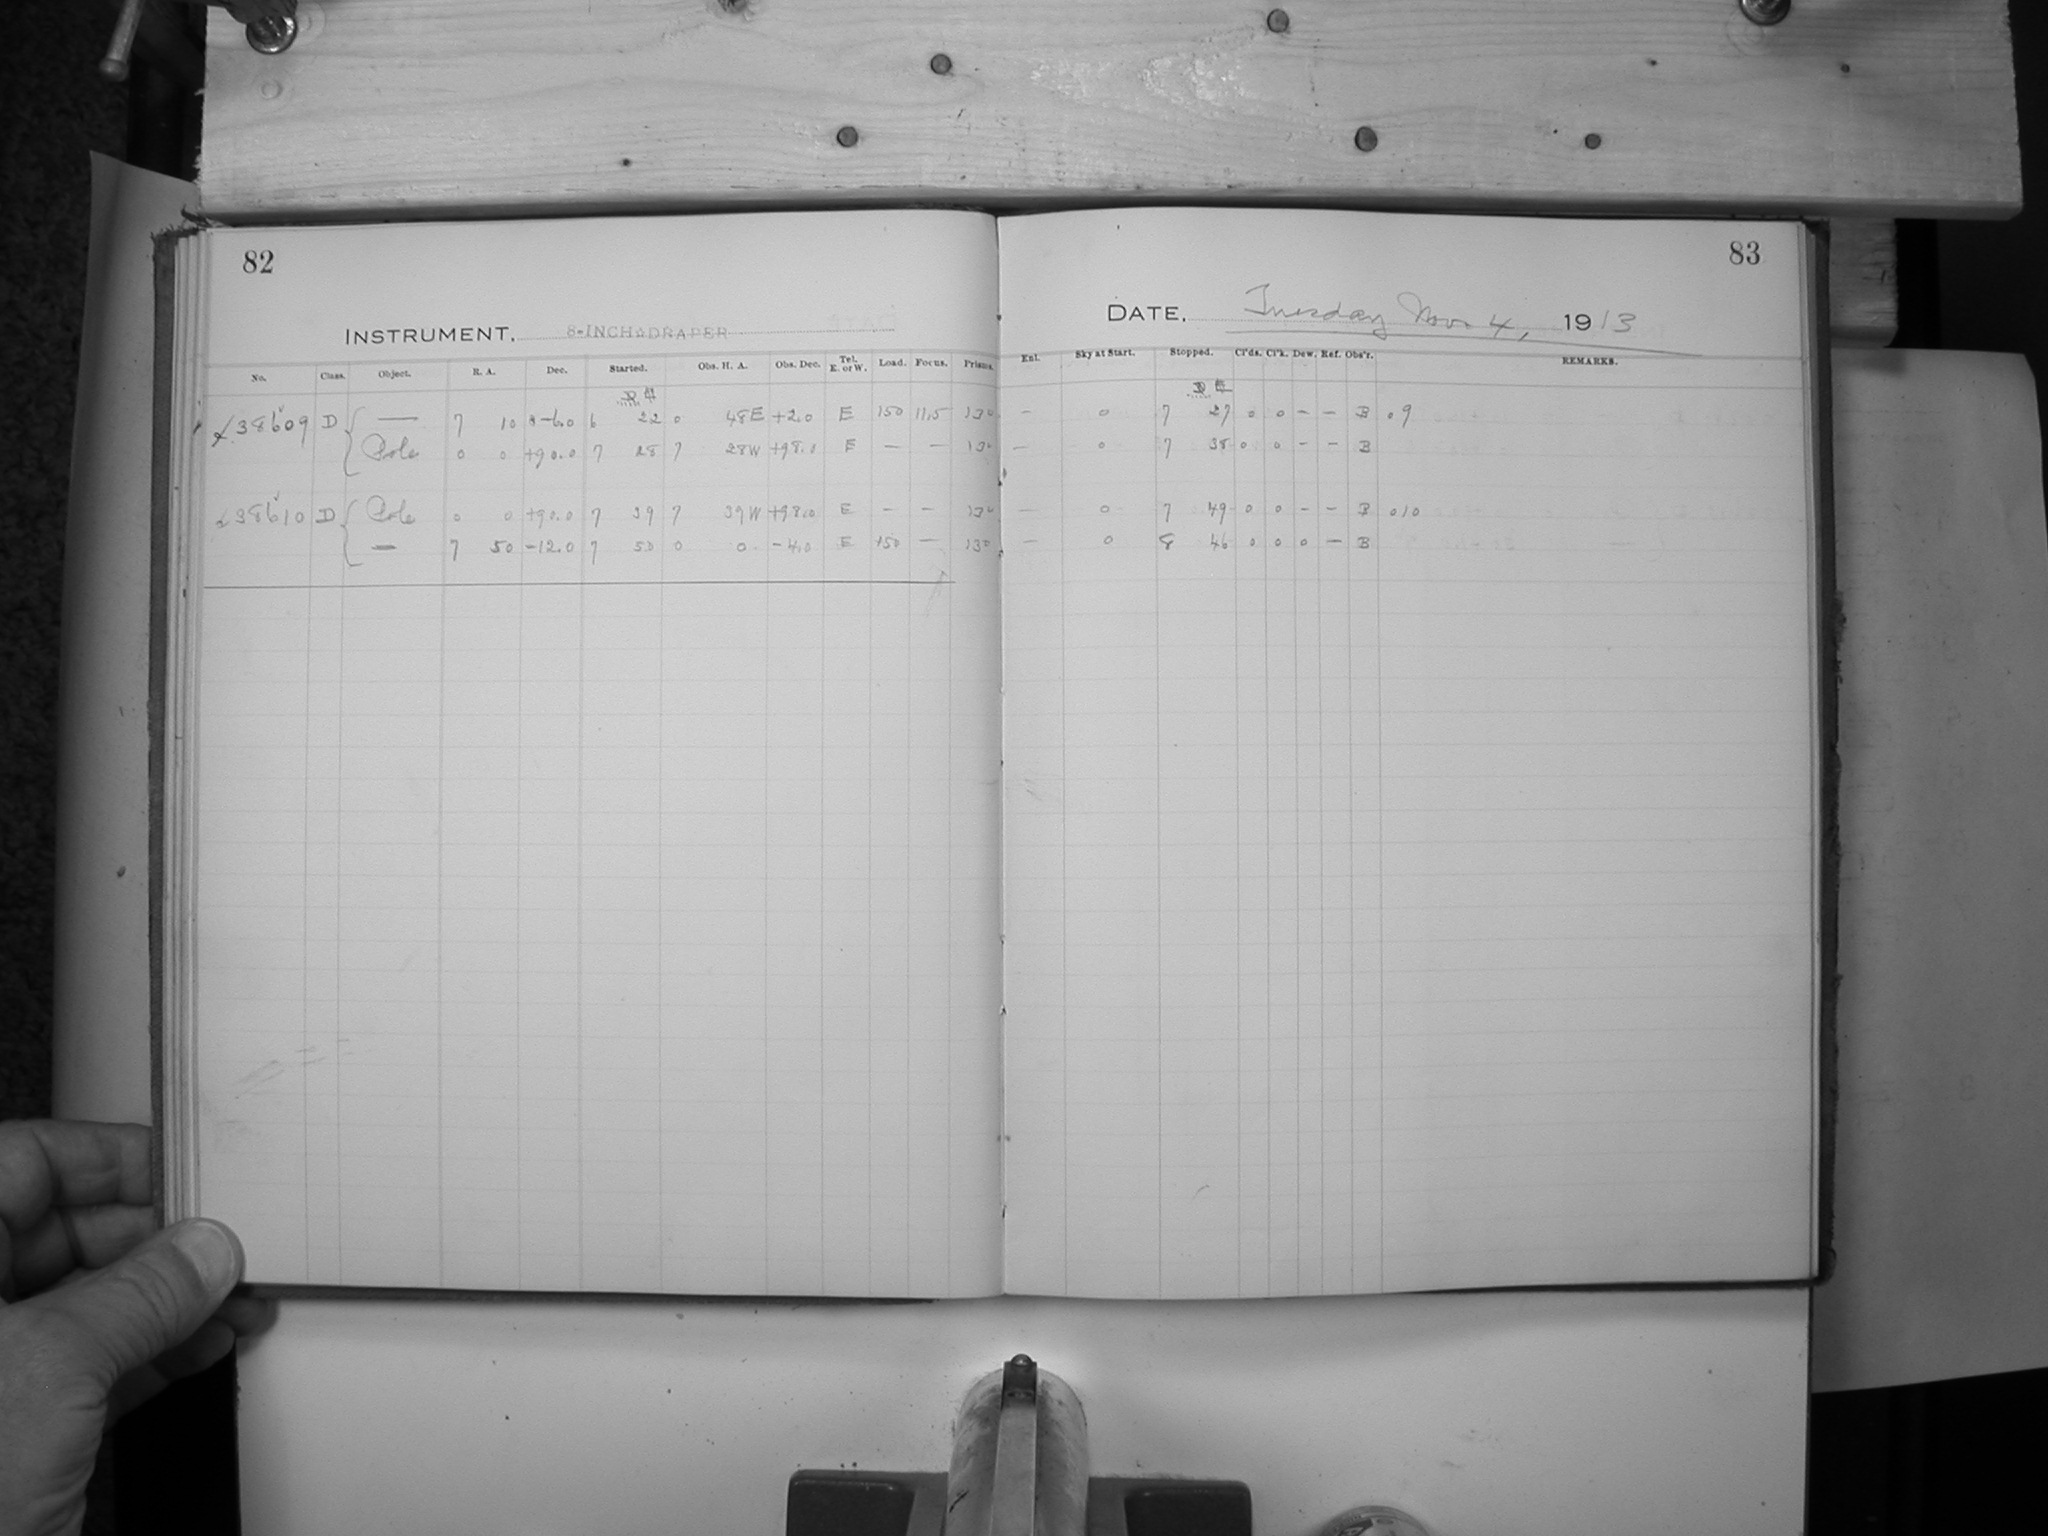 82
INSTRUMENT. 8-INCH DRAPER
No. Class. Object. R. A. Dec. Started. Obs. H. A. Obs. Dec. Tel. E. or W. Load. Focus. Prisms.
38609 D { — 7 10 -6.0 6 22 0 48E +2.0 E 150 11.5 13°
Pole 0 0 +90.0 7 28 7 28W +98.0 E — — 13°
38610 D { Pole 0 0 +90.0 7 39 7 39W +98.0 E — — 13°
— 7 50 -12.0 7 50 0 0 -4.0 E 150 — 13°
83
DATE. Tuesday Nov. 4, 1913
Enl. Sky at Start. Stopped. Cl'ds. Cl'k. Dew. Ref. Obs'r. REMARKS.
— 0 7 27 0 0 — — B 09
— 0 7 38 0 0 — — B
— 0 7 49 0 0 — — B 010
— 0 8 46 0 0 0 — B